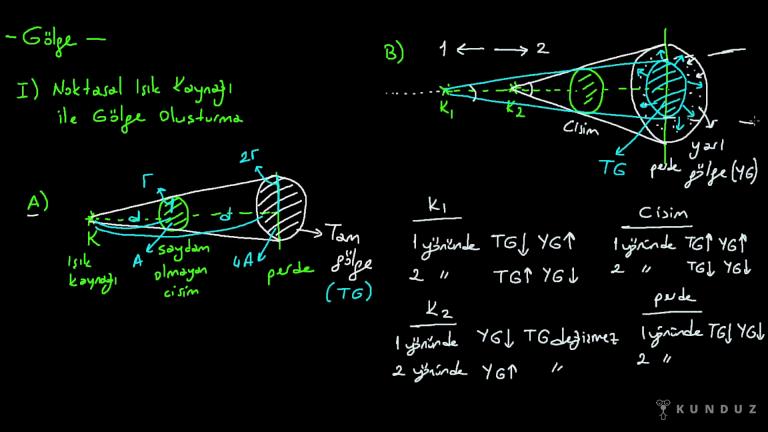 - Gölge -
I) Noktasal Işık Kaynağı
ile Gölge Oluşturma
A)
2r
r
d
d
K
ışık
kaynağı
A
saydam
olmayan
cisim
4A
perde
Tam
gölge
(TG)
B)
1 ← → 2
K1
K2
Cisim
TG
perde
yarı
gölge (YG)
K1
1 yönünde TG↓ YG↑
2 " TG↑ YG↓
Cisim
1 yönünde TG↑ YG↑
2 " TG↓ YG↓
K2
1 yönünde YG↓ TG değişmez
2 yönünde YG↑ "
perde
1 yönünde TG↓ YG↓
2 "
KUNDUZ